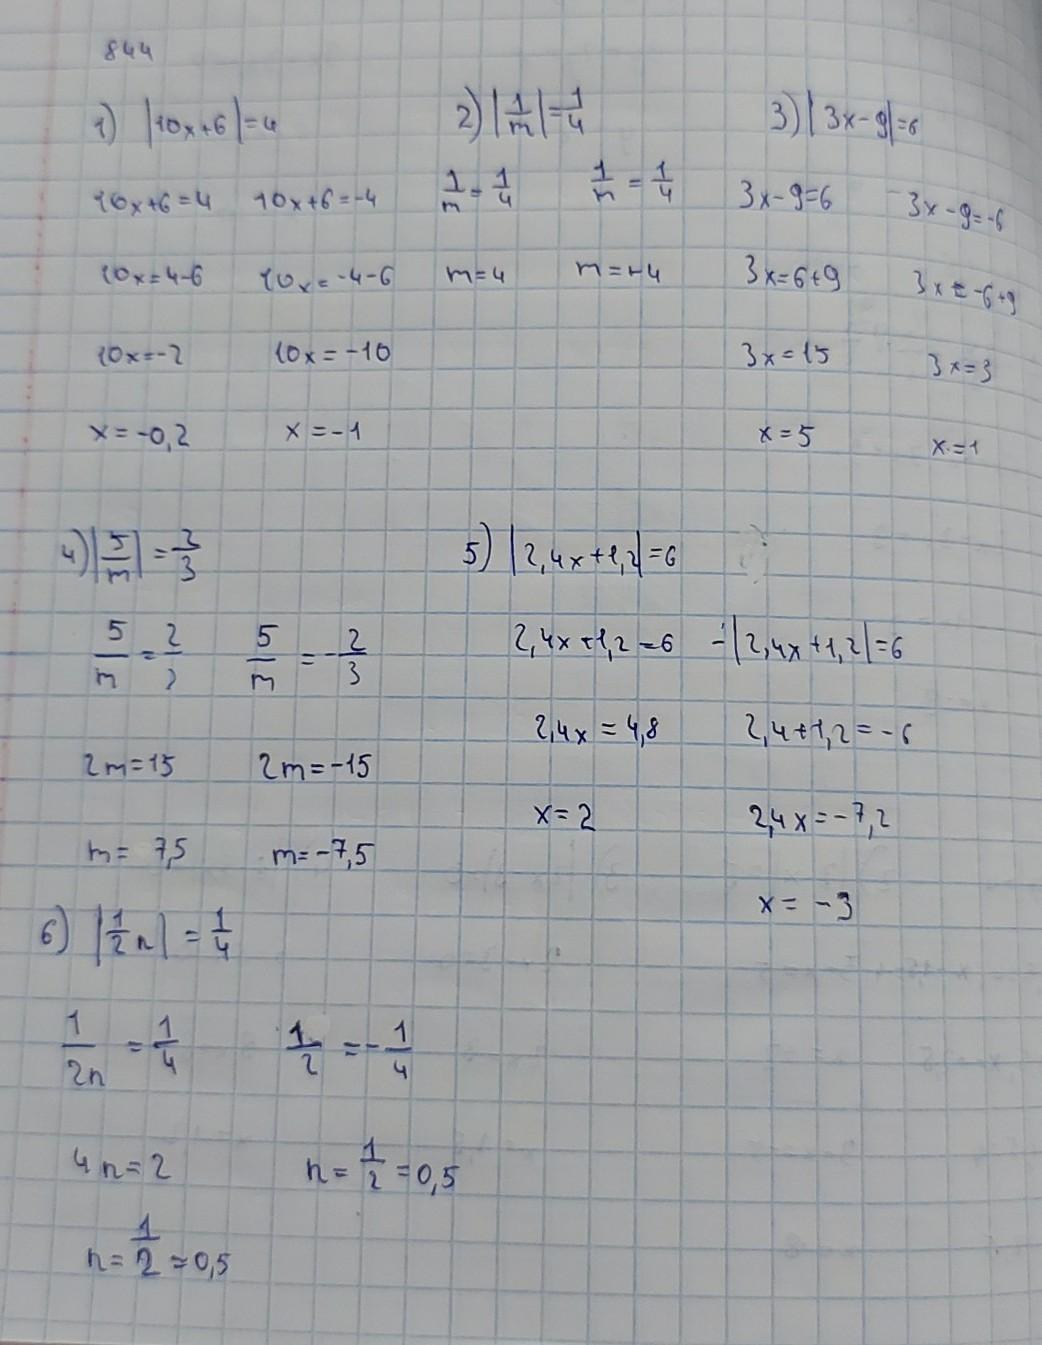 844
1) |10x+6|=4 2) |1/m|=1/4 3) |3x-9|=6
10x+6=4 10x+6=-4 1/m=1/4 1/m=1/4 3x-9=6 3x-9=-6
10x=4-6 10x=-4-6 m=4 m=-4 3x=6+9 3x=-6+9
10x=-2 10x=-10 3x=15 3x=3
x=-0,2 x=-1 x=5 x=1
4) |5/m|=2/3 5) |2,4x+1,2|=6
5/m=2/3 5/m=-2/3 2,4x+1,2=6 -|2,4x+1,2|=6
2m=15 2m=-15 2,4x=4,8 2,4+1,2=-6
m=7,5 m=-7,5 x=2 2,4x=-7,2
x=-3
6) |1/2 n|=1/4
1/2n=1/4 1/2=-1/4
4n=2 n=1/2=0,5
n=1/2=0,5